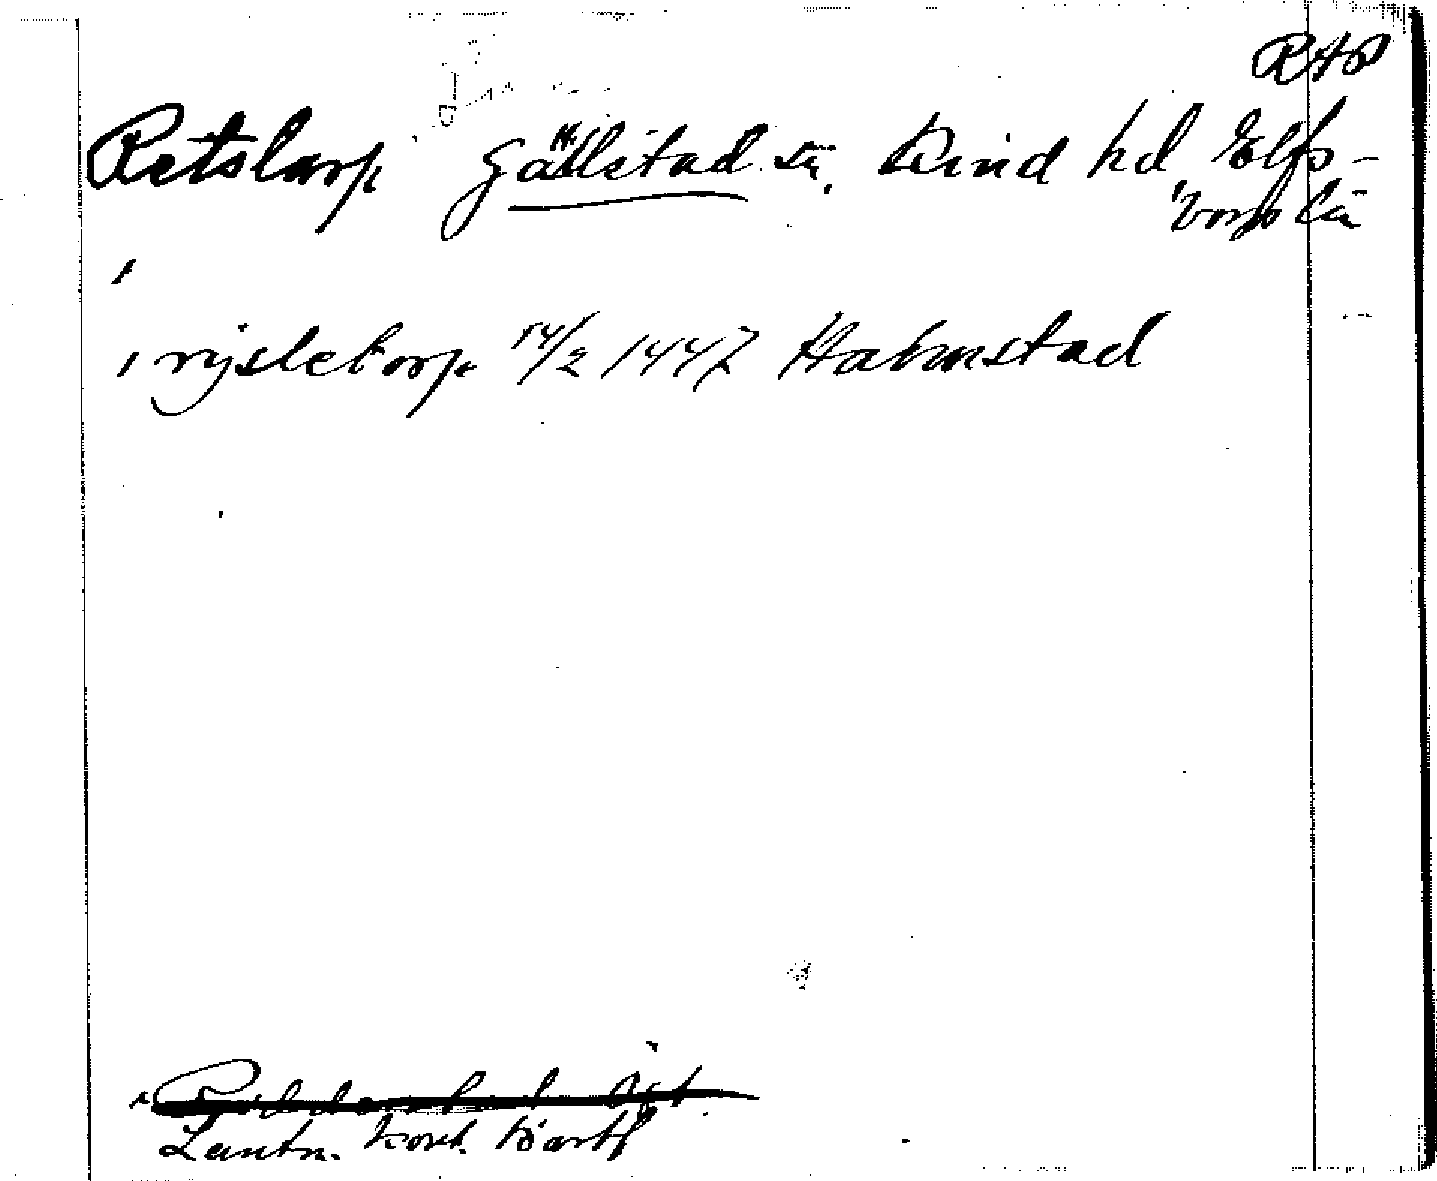 RAP
Retstorp Gällstad sn. Kind hd Elfs-
borgs län
i
i rysletorp 14/2 1447 Halmstad
Lantm. kont.